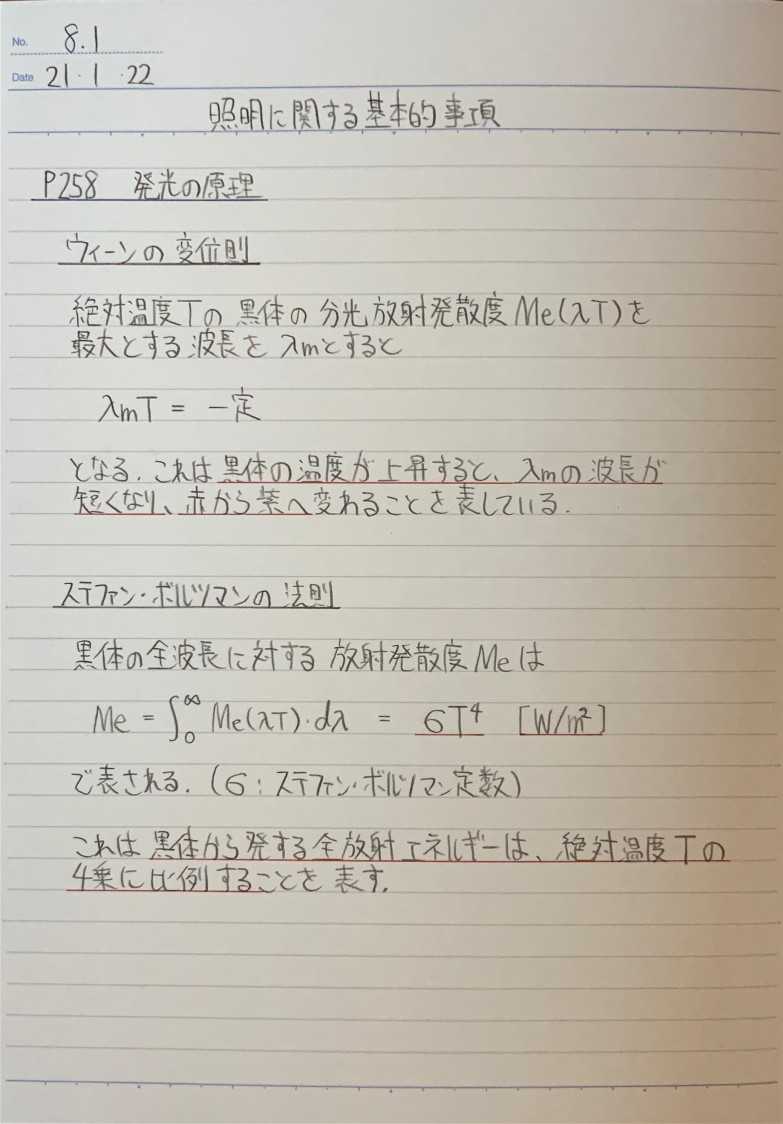 No. 8.1
Date 21・1・22
照明に関する基本的事項
P258 発光の原理
ウィーンの変位則
絶対温度Tの黒体の分光放射発散度Me(λT)を
最大とする波長をλmとすると
λmT = 一定
となる. これは黒体の温度が上昇すると、λmの波長が
短くなり、赤から紫へ変わることを表している.
ステファン・ボルツマンの法則
黒体の全波長に対する放射発散度Meは
Me = ∫₀^∞ Me(λT)・dλ = σT⁴ [W/m²]
で表される. (σ:ステファン・ボルツマン定数)
これは黒体から発する全放射エネルギーは、絶対温度Tの
4乗に比例することを表す.